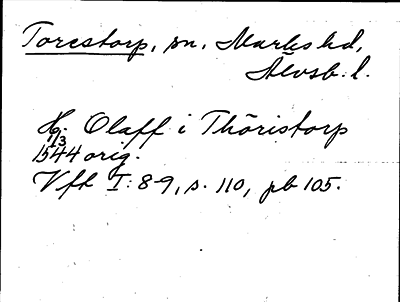 Torestorp, sn, Marks hd,
Älvsb. l.
H. Olaff i Thöristorp
9/3
1544 orig.
Vfk I: 8-9, s. 110, pb 105.